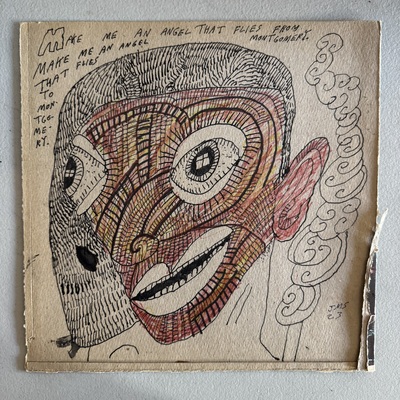 MAKE ME AN ANGEL THAT FLIES FROM
MONTGOMERY.
MAKE ME AN ANGEL
THAT FLIES
TO
MON-
TGO-
ME-
RY.